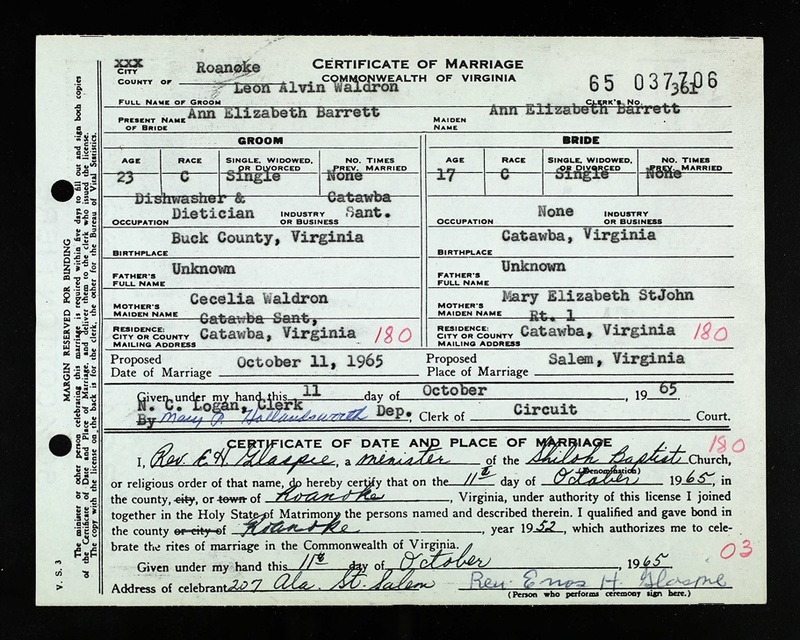 XXX CITY COUNTY OF Roanoke
CERTIFICATE OF MARRIAGE
COMMONWEALTH OF VIRGINIA
65 037706
361
CLERK'S NO.
FULL NAME OF GROOM Leon Alvin Waldron
PRESENT NAME OF BRIDE Ann Elizabeth Barrett MAIDEN NAME Ann Elizabeth Barrett
GROOM BRIDE
AGE RACE SINGLE, WIDOWED, OR DIVORCED NO. TIMES PREV. MARRIED AGE RACE SINGLE, WIDOWED, OR DIVORCED NO. TIMES PREV. MARRIED
23 C Single None 17 C Single None
Dishwasher & Catawba
OCCUPATION Dietician INDUSTRY OR BUSINESS Sant. OCCUPATION None INDUSTRY OR BUSINESS
BIRTHPLACE Buck County, Virginia BIRTHPLACE Catawba, Virginia
FATHER'S FULL NAME Unknown FATHER'S FULL NAME Unknown
MOTHER'S MAIDEN NAME Cecelia Waldron MOTHER'S MAIDEN NAME Mary Elizabeth StJohn
Catawba Sant, Rt. 1
RESIDENCE: CITY OR COUNTY MAILING ADDRESS Catawba, Virginia 180 RESIDENCE: CITY OR COUNTY MAILING ADDRESS Catawba, Virginia 180
Proposed Date of Marriage October 11, 1965 Proposed Place of Marriage Salem, Virginia
Given under my hand this 11 day of October, 1965
N. C. Logan, Clerk
By Mary P. Hollandsworth Dep. Clerk of Circuit Court.
CERTIFICATE OF DATE AND PLACE OF MARRIAGE 180
I, Rev. E H Glaspie, a menister of the Shiloh Baptist Church,
(Denomination)
or religious order of that name, do hereby certify that on the 11th day of October 1965, in
the county, city, or town of Roanoke, Virginia, under authority of this license I joined
together in the Holy State of Matrimony the persons named and described therein. I qualified and gave bond in
the county or city of Roanoke, year 1952, which authorizes me to cele-
brate the rites of marriage in the Commonwealth of Virginia.
03
Given under my hand this 11th day of October, 1965
Address of celebrant 207 Ala. St. Salem Rev. Enos H. Glaspie
(Person who performs ceremony sign here.)
V. S. 3
MARGIN RESERVED FOR BINDING
The minister or other person celebrating this marriage is required within five days to fill out and sign both copies
of the Certificate of Date and Place of Marriage, and deliver them to the clerk who issued the license.
The copy with the license on the back is for the clerk, the other for the Bureau of Vital Statistics.